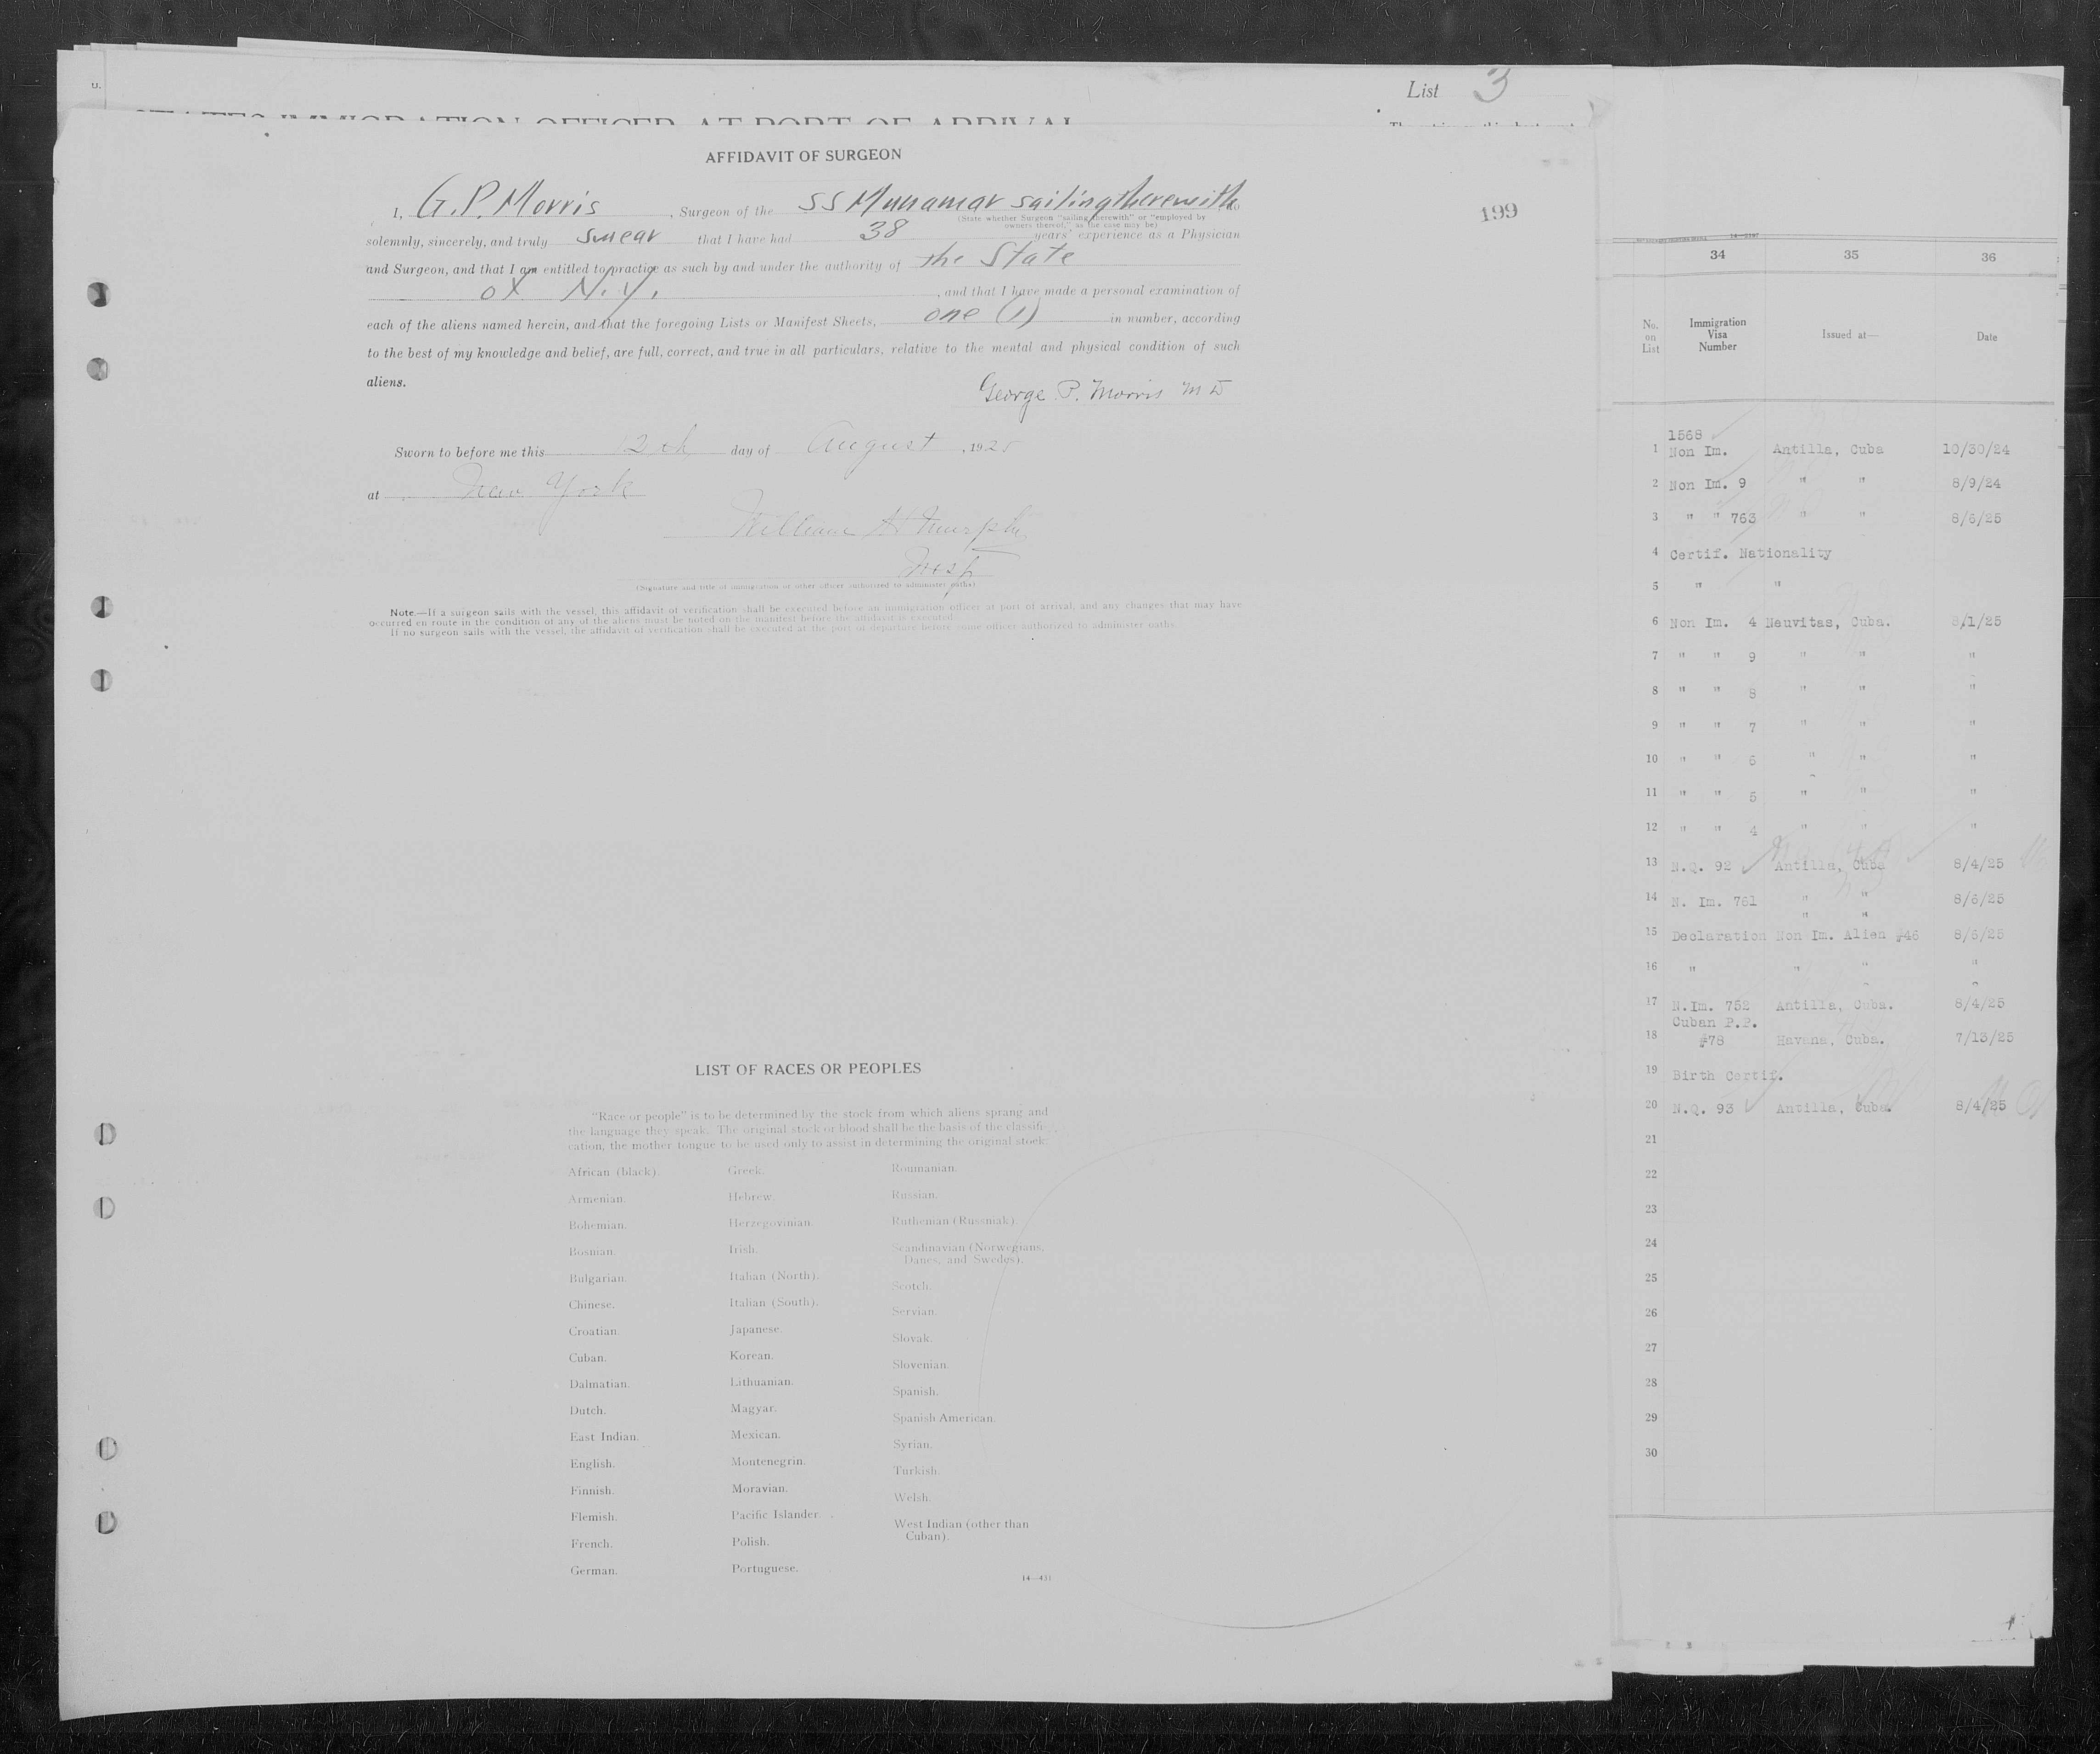 List 3
STATES IMMIGRATION OFFICER AT PORT OF ARRIVAL
AFFIDAVIT OF SURGEON
199
I, G. P. Morris, Surgeon of the SS Munamar sailing therewith, do
(State whether Surgeon "sailing therewith" or "employed by
owners thereof," as the case may be)
solemnly, sincerely, and truly swear that I have had 38 years' experience as a Physician
and Surgeon, and that I am entitled to practice as such by and under the authority of the State
of N.Y., and that I have made a personal examination of
each of the aliens named herein, and that the foregoing Lists or Manifest Sheets, one (1) in number, according
to the best of my knowledge and belief, are full, correct, and true in all particulars, relative to the mental and physical condition of such
aliens.
George P. Morris MD
Sworn to before me this 12th day of August, 1925
at New York
William H Murphy
Insp
(Signature and title of immigration or other officer authorized to administer oaths)
Note.—If a surgeon sails with the vessel, this affidavit of verification shall be executed before an immigration officer at port of arrival, and any changes that may have
occurred en route in the condition of any of the aliens must be noted on the manifest before the affidavit is executed.
If no surgeon sails with the vessel, the affidavit of verification shall be executed at the port of departure before some officer authorized to administer oaths.
LIST OF RACES OR PEOPLES
"Race or people" is to be determined by the stock from which aliens sprang and
the language they speak. The original stock or blood shall be the basis of the classifi-
cation, the mother tongue to be used only to assist in determining the original stock.
African (black).
Armenian.
Bohemian.
Bosnian.
Bulgarian.
Chinese.
Croatian.
Cuban.
Dalmatian.
Dutch.
East Indian.
English.
Finnish.
Flemish.
French.
German.
Greek.
Hebrew.
Herzegovinian.
Irish.
Italian (North).
Italian (South).
Japanese.
Korean.
Lithuanian.
Magyar.
Mexican.
Montenegrin.
Moravian.
Pacific Islander.
Polish.
Portuguese.
Roumanian.
Russian.
Ruthenian (Russniak).
Scandinavian (Norwegians,
Danes, and Swedes).
Scotch.
Servian.
Slovak.
Slovenian.
Spanish.
Spanish American.
Syrian.
Turkish.
Welsh.
West Indian (other than
Cuban).
14—431
34 35 36
No. on List Immigration Visa Number Issued at— Date
1568
1 Non Im. Antilla, Cuba 10/30/24
2 Non Im. 9 " " 8/9/24
3 " " 763 " " 8/6/25
4 Certif. Nationality
5 " "
6 Non Im. 4 Neuvitas, Cuba. 8/1/25
7 " " 9 " " "
8 " " 8 " " "
9 " " 7 " " "
10 " " 6 " " "
11 " " 5 " " "
12 " " 4 " " "
13 N.Q. 92 Antilla, Cuba 8/4/25
14 N. Im. 761 " " 8/6/25
" "
15 Declaration Non Im. Alien #46 8/6/25
16 " " " "
17 N.Im. 752 Antilla, Cuba. 8/4/25
Cuban P.P.
18 #78 Havana, Cuba. 7/13/25
19 Birth Certif.
20 N.Q. 93 Antilla, Cuba. 8/4/25
21
22
23
24
25
26
27
28
29
30